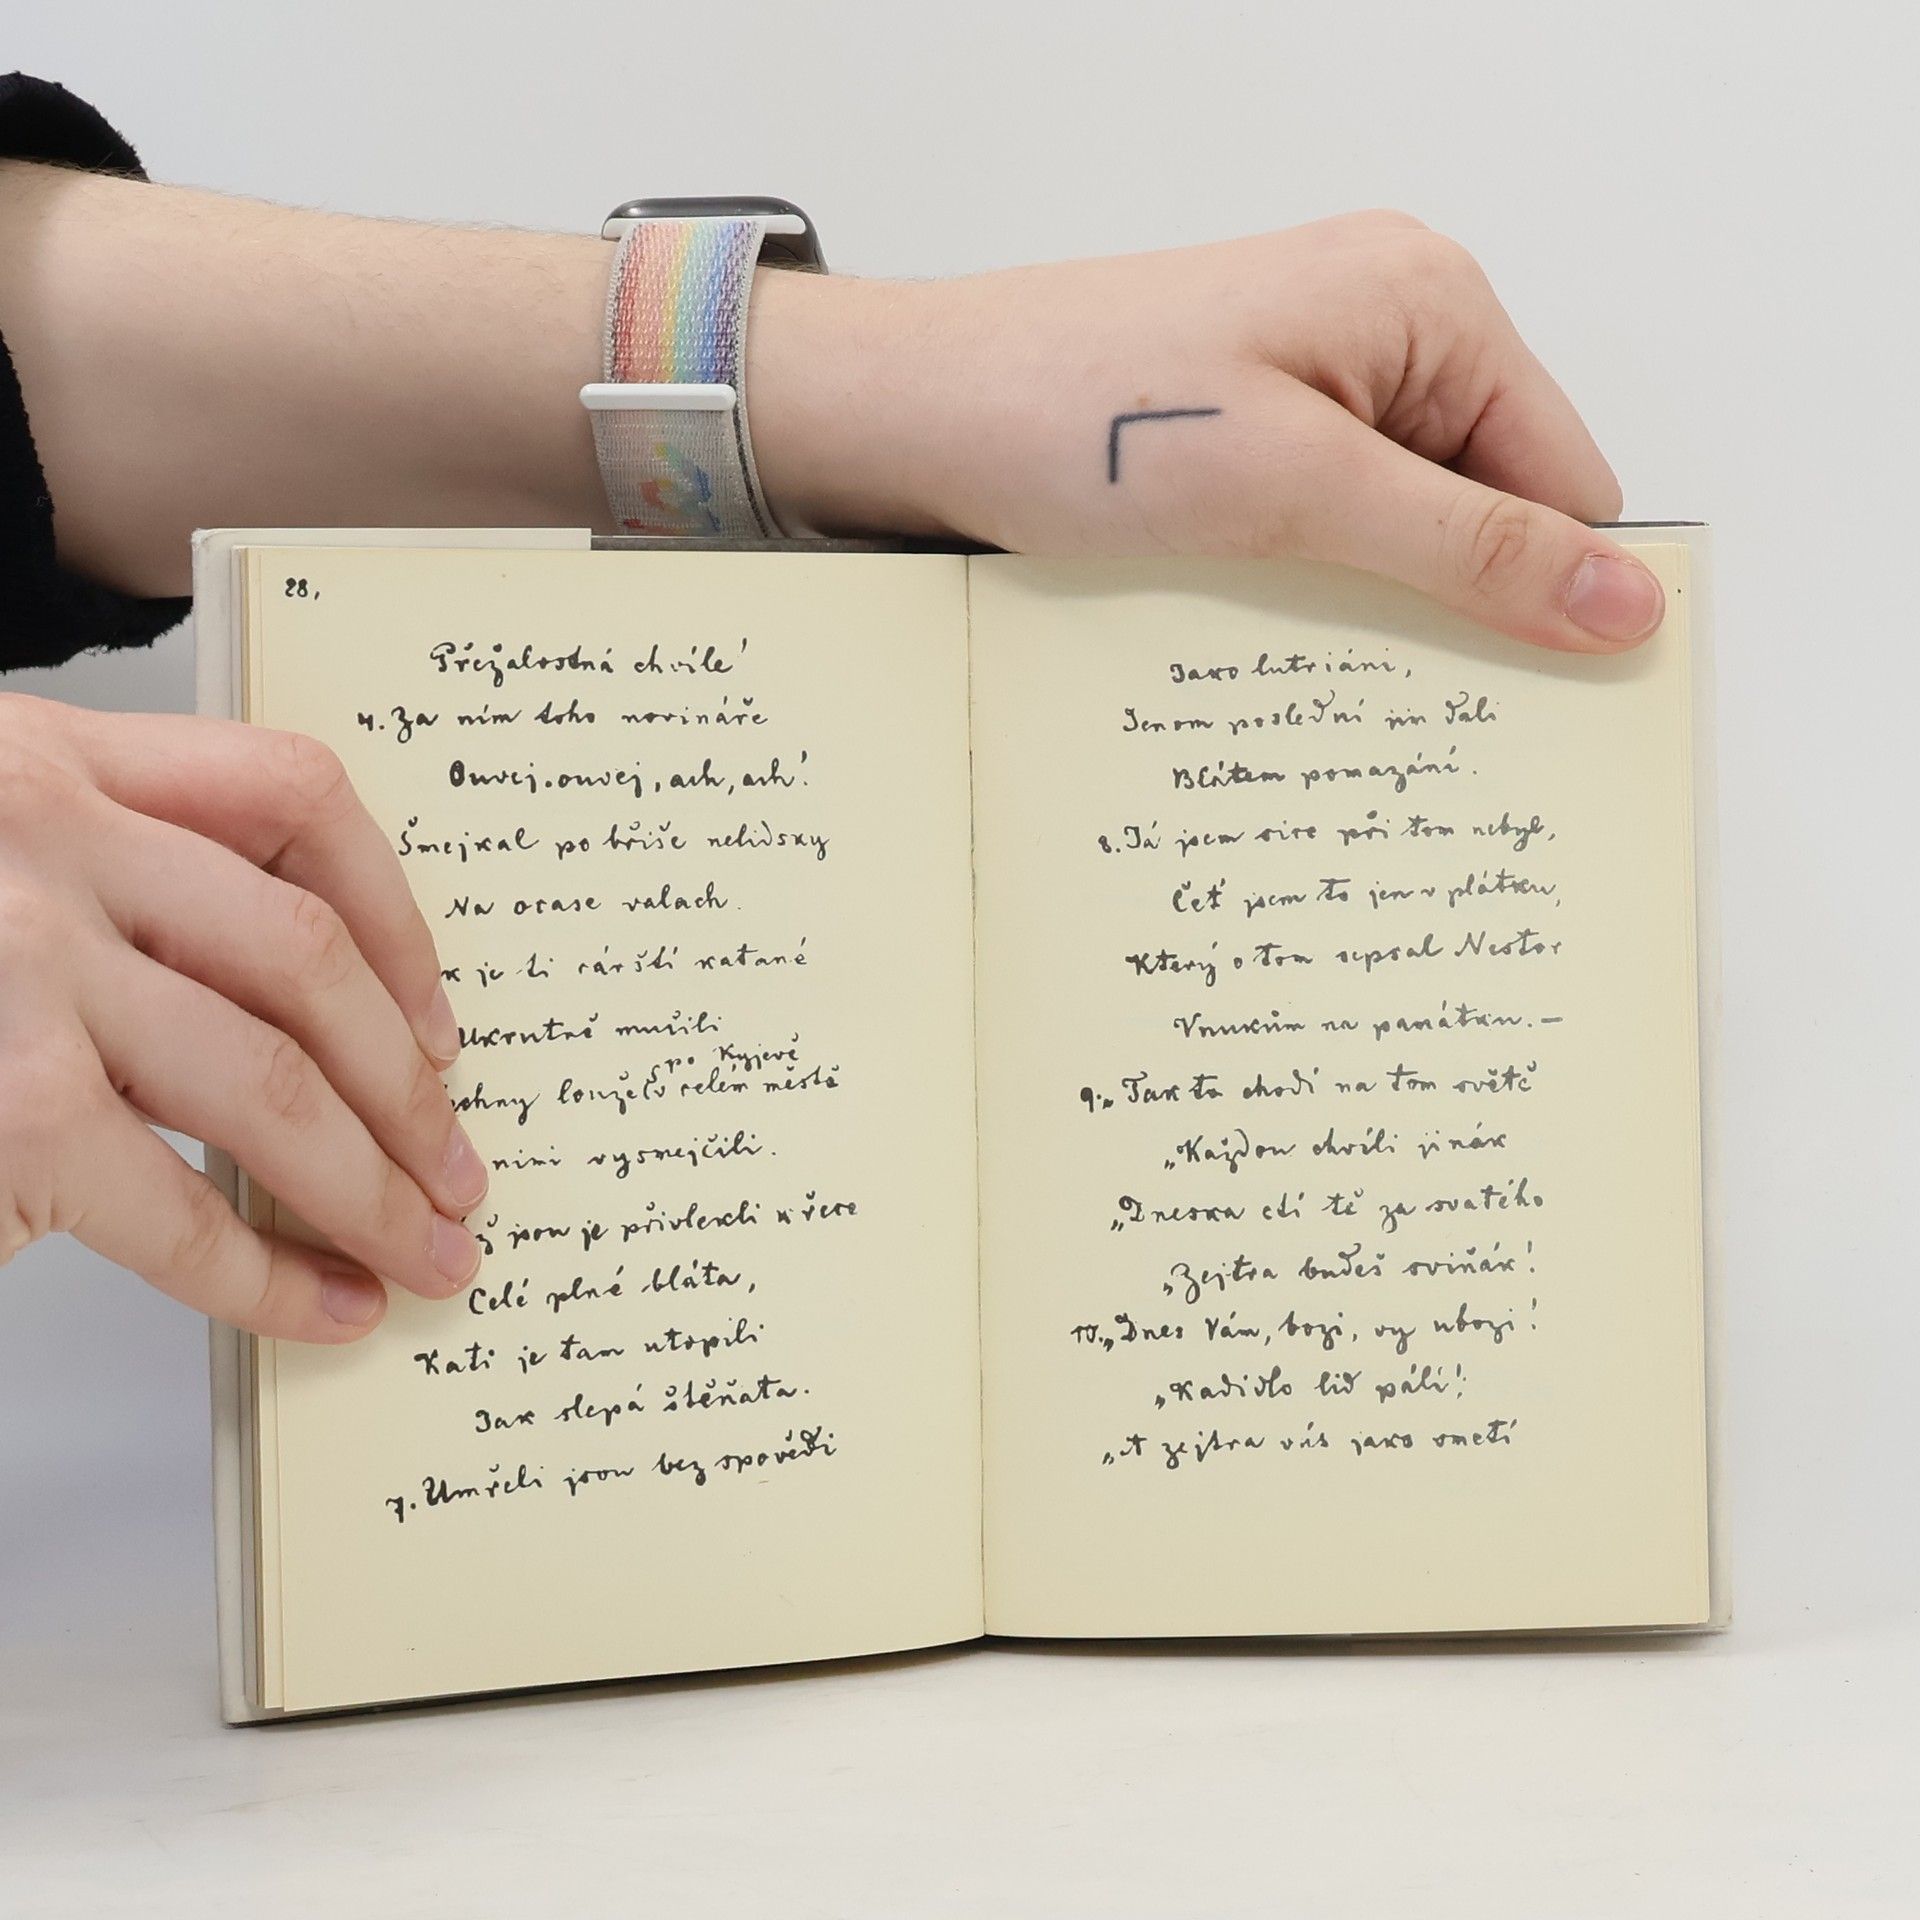 28,
Přežalostná chvíle!
4. Za ním toho novináře
Ouvej, ouvej, ach, ach!
Šmejkal po břiše nelidsky
Na ocase valach.
k je ti cárští katané
Ukrutně mučili
po Kyjevě
chny louže (v celém městě
nimi vysmejčili.
ž jsou je přivlekli k řece
Celé plné bláta,
Kati je tam utopili
Jak slepá štěňata.
7. Umřeli jsou bez spovědi
Jako lutriáni,
Jenom poslední jim dali
Blátem pomazání.
8. Já jsem sice při tom nebyl,
Čet' jsem to jen v plátku,
Který o tom sepsal Nestor
Vnukům na památku. —
9. „Tak to chodí na tom světě
„Každou chvíli jinák
„Dneska ctí tě za svatého
„Zejtra budeš sviňák!
10. „Dnes Vám, bozi, vy ubozi!
„Kadidlo lid pálí!
„A zejtra vás jako smetí